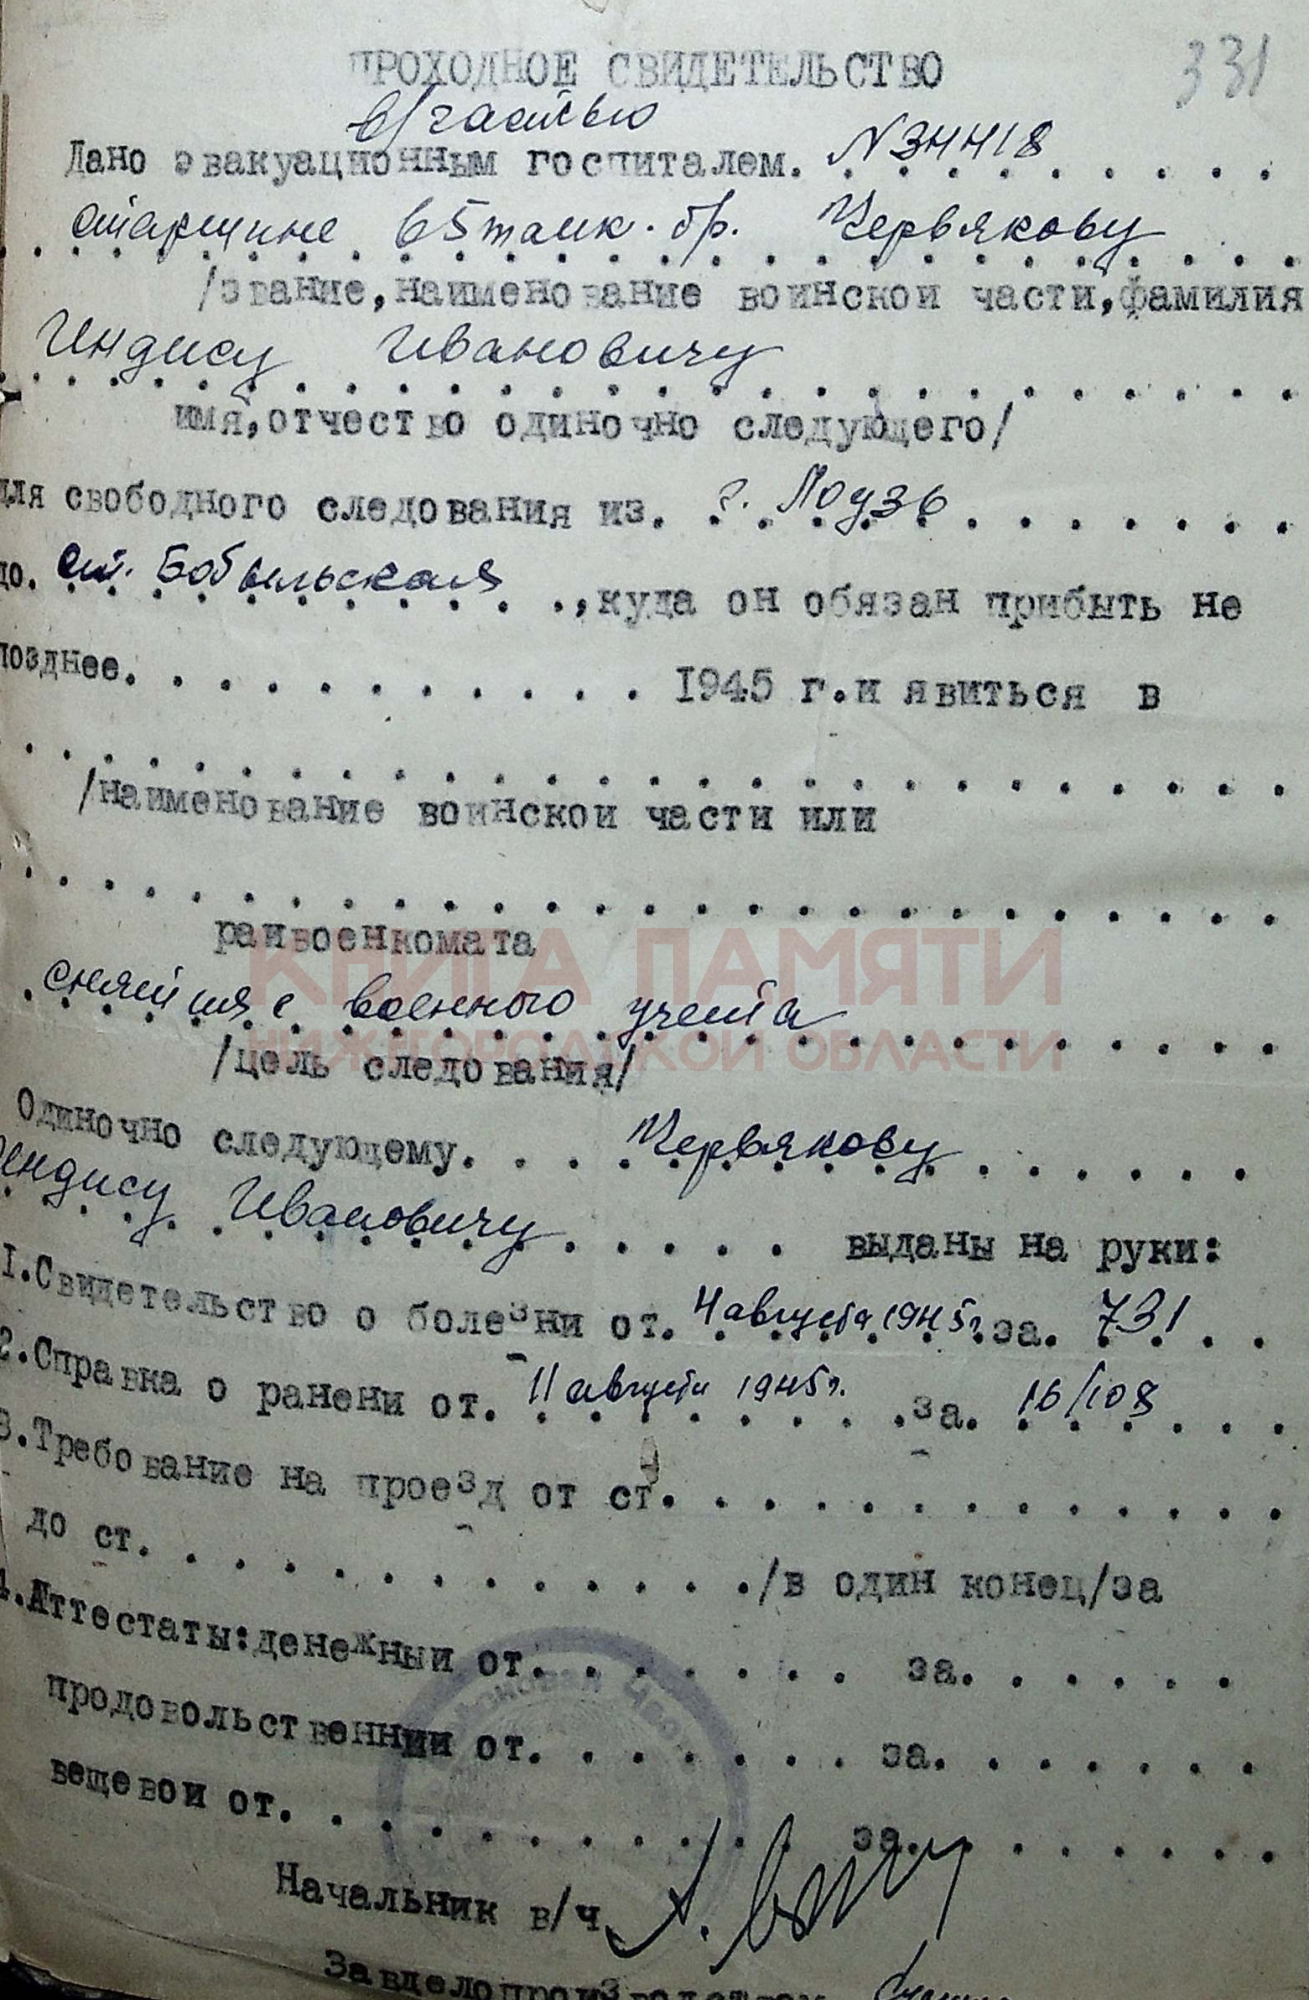 331
ПРОХОДНОЕ СВИДЕТЕЛЬСТВО
в/частью
Дано эвакуационным госпиталем. N 34418
старшине 65 танк. бр. Червякову
/звание, наименование воинской части, фамилия
Индису Ивановичу
имя, отчество одиночно следующего/
для свободного следования из. г. Лодзь
до. ст. Бобыльская ., куда он обязан прибыть не
позднее. . . . . . . . . . . 1945 г. и явиться в
/наименование воинской части или
райвоенкомата
КНИГА ПАМЯТИ
сняться с военного учета
НИЖЕГОРОДСКОЙ ОБЛАСТИ
/цель следования/
Одиночно следующему. . . . Червякову
Индису Ивановичу . . . . . выданы на руки:
1. Свидетельство о болезни от. 4 августа 1945 г. за. 731
2. Справка о ранени от. 11 августа 1945 г. за. 16/108
3. Требование на проезд от ст. . . . . . . . . . . . .
до ст. . . . . . . . . . . . . ./в один конец/за
4. Аттестаты: денежный от. . . . . . . за. . . . . .
продовольственный от. . . . . . . за. . . . . . .
вещевой от. . . . . . . . . . . за. . . . . . . .
Начальник в/ч.
Завделопроизводством